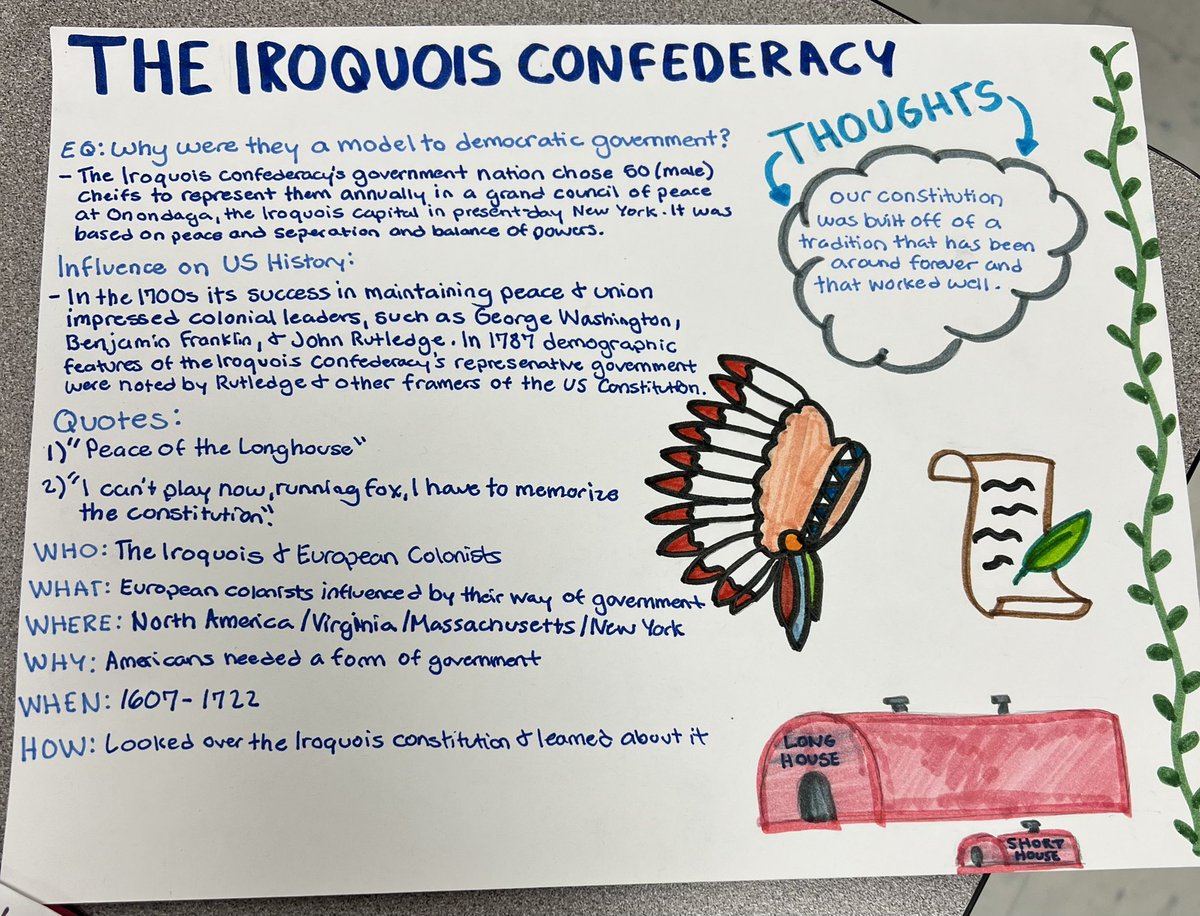 THE IROQUOIS CONFEDERACY
EQ: Why were they a model to democratic government?
- The Iroquois Confederacy's government nation chose 50 (male)
cheifs to represent them annually in a grand council of peace
at Onondaga, the Iroquois capital in present-day New York. It was
based on peace and seperation and balance of powers.
Influence on US History:
- In the 1700s its success in maintaining peace & union
impressed colonial leaders, such as George Washington,
Benjamin Franklin, & John Rutledge. In 1787 demographic
features of the Iroquois Confederacy's represenative government
were noted by Rutledge & other framers of the US Constitution.
Quotes:
1) "Peace of the Longhouse"
2) "I can't play now, running fox, I have to memorize
the constitution".
WHO: The Iroquois & European Colonists
WHAT: European colonists influenced by their way of government
WHERE: North America/Virginia/Massachusetts/New York
WHY: Americans needed a form of government
WHEN: 1607-1722
HOW: Looked over the Iroquois constitution & learned about it
THOUGHTS
our constitution
was built off of a
tradition that has been
around forever and
that worked well.
LONG
HOUSE
SHORT
HOUSE